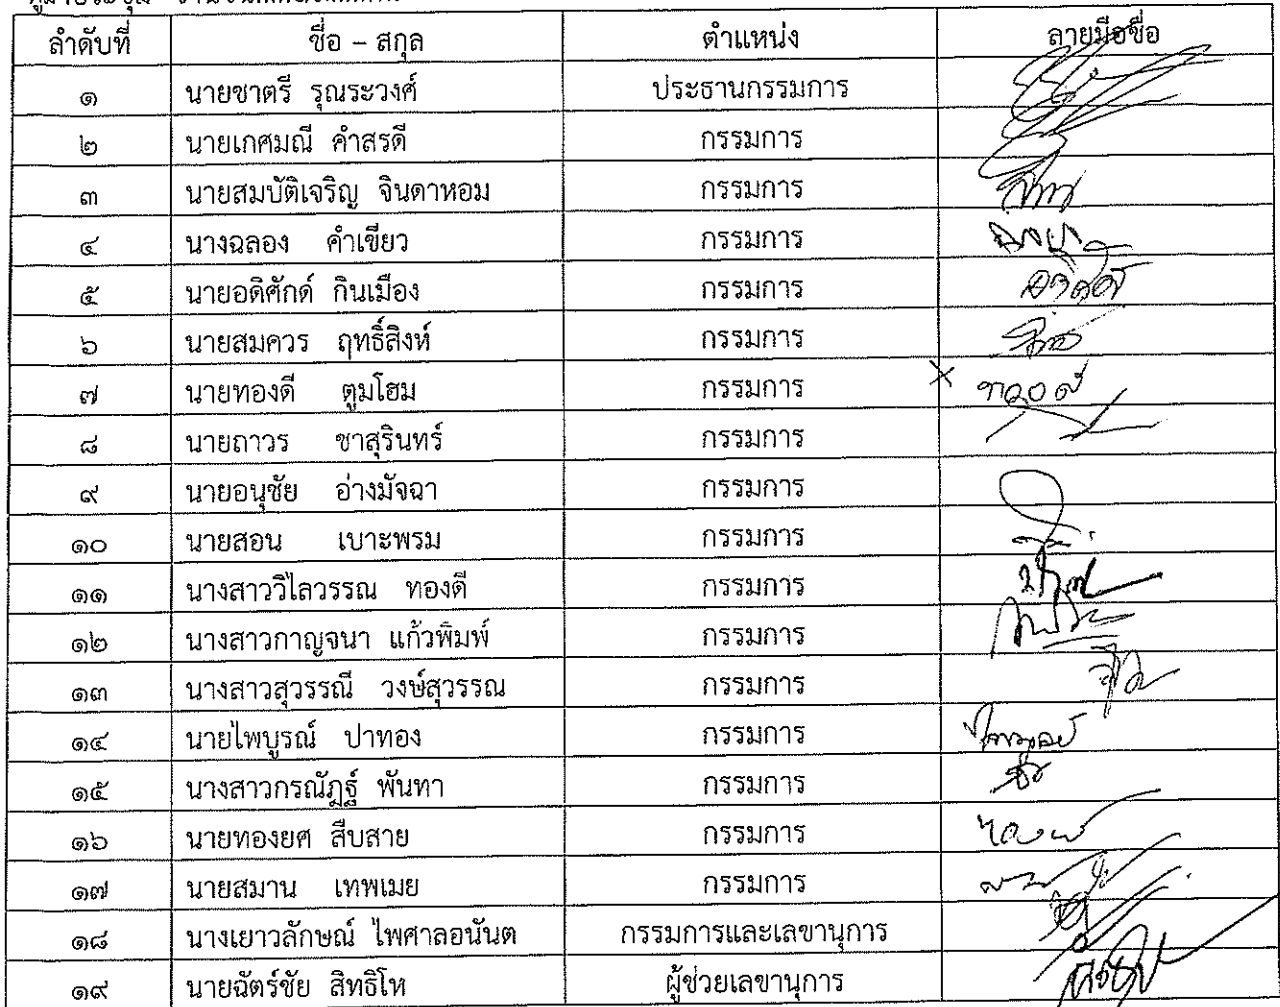 ลำดับที่ ชื่อ – สกุล ตำแหน่ง ลายมือชื่อ
๑ นายชาตรี รุณระวงศ์ ประธานกรรมการ
๒ นายเกศมณี คำสรดี กรรมการ
๓ นายสมบัติเจริญ จินดาหอม กรรมการ
๔ นางฉลอง คำเขียว กรรมการ
๕ นายอดิศักด์ กินเมือง กรรมการ
๖ นายสมควร ฤทธิ์สิงห์ กรรมการ
๗ นายทองดี ตูมโฮม กรรมการ
๘ นายถาวร ชาสุรินทร์ กรรมการ
๙ นายอนุชัย อ่างมัจฉา กรรมการ
๑๐ นายสอน เบาะพรม กรรมการ
๑๑ นางสาววิไลวรรณ ทองดี กรรมการ
๑๒ นางสาวกาญจนา แก้วพิมพ์ กรรมการ
๑๓ นางสาวสุวรรณี วงษ์สุวรรณ กรรมการ
๑๔ นายไพบูรณ์ ปาทอง กรรมการ
๑๕ นางสาวกรณัฏฐ์ พันทา กรรมการ
๑๖ นายทองยศ สืบสาย กรรมการ
๑๗ นายสมาน เทพเมย กรรมการ
๑๘ นางเยาวลักษณ์ ไพศาลอนันต กรรมการและเลขานุการ
๑๙ นายฉัตร์ชัย สิทธิโห ผู้ช่วยเลขานุการ